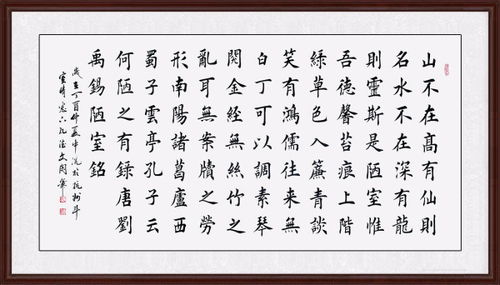 山不在高有仙則
名水不在深有龍
則靈斯是陋室惟
吾德馨苔痕上階
綠草色入簾青談
笑有鴻儒往來無
白丁可以調素琴
閱金經無絲竹之
亂耳無案牘之勞
形南陽諸葛廬西
蜀子雲亭孔子云
何陋之有錄唐劉
禹錫陋室銘
歲在丁酉仲夏中浣於杭州斗
室時